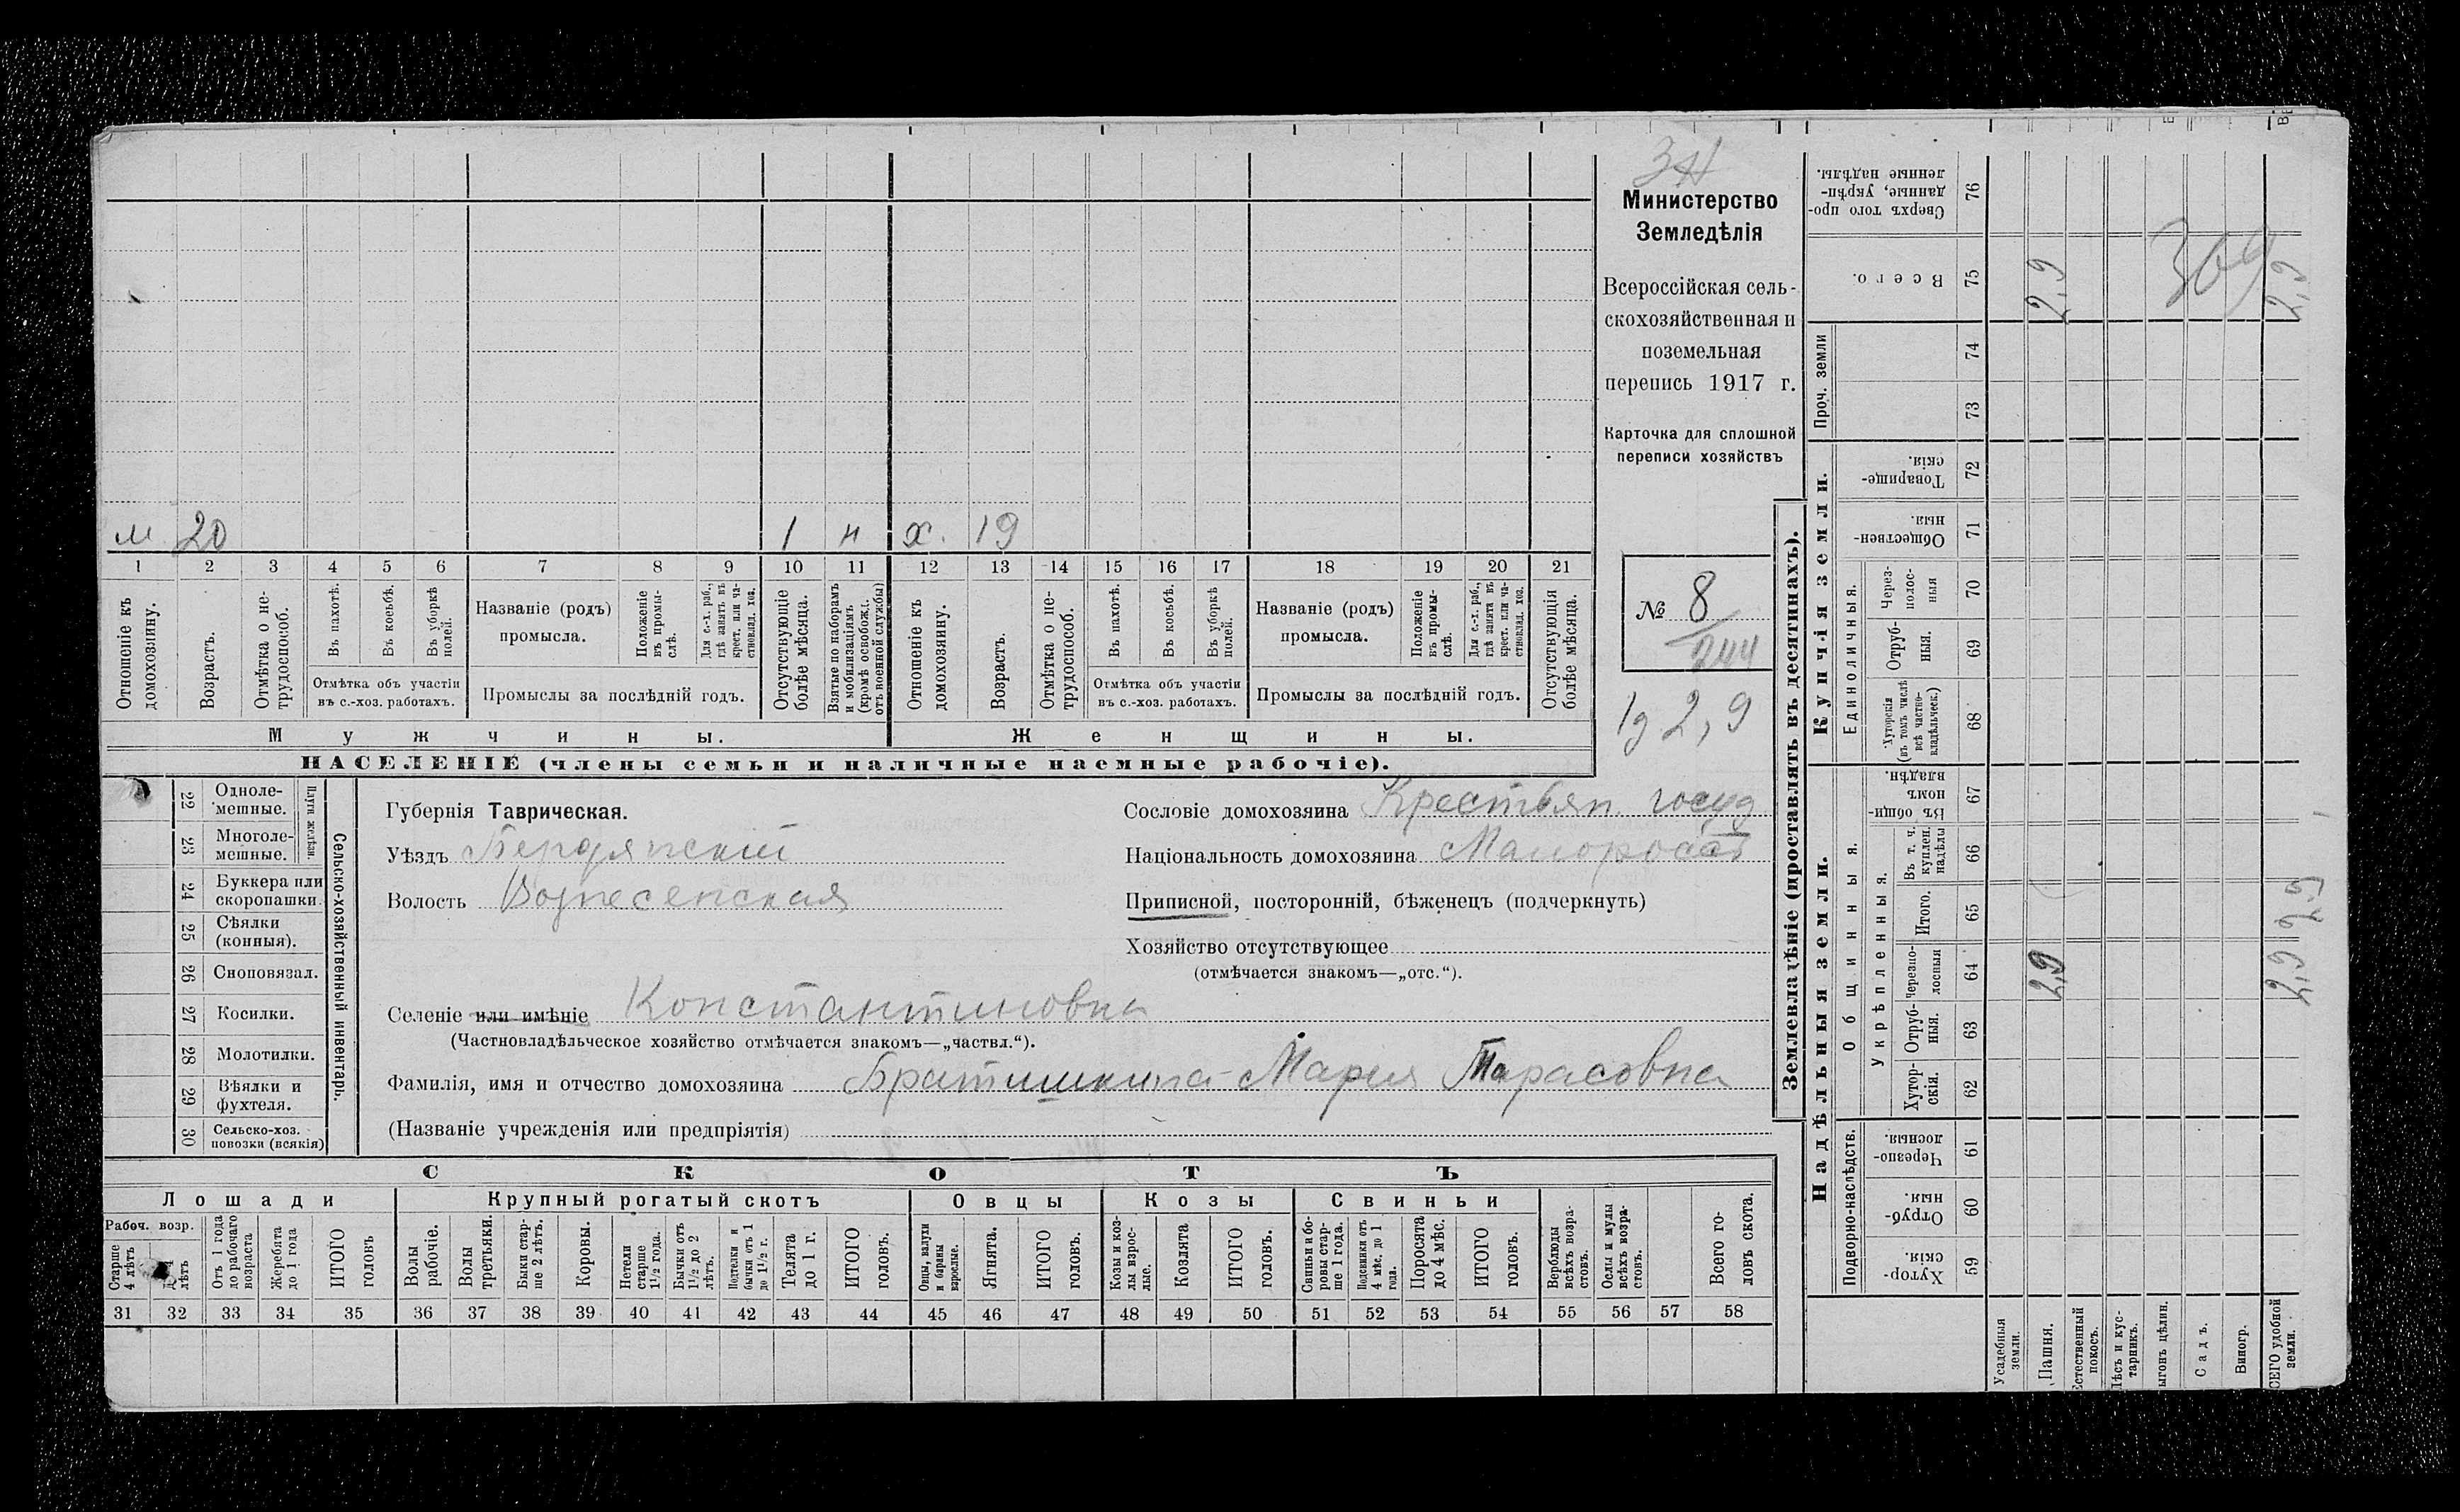 Министерство
Земледѣлія
Всероссійская сель-
скохозяйственная и
поземельная
перепись 1917 г.
Карточка для сплошной
переписи хозяйствъ
№ 8
244
2,9
м 20 1 н х. 19
1 2 3 4 5 6 7 8 9 10 11 12 13 14 15 16 17 18 19 20 21
Отношеніе къ домохозяину.
Возрастъ.
Отмѣтка о не-трудоспособ.
Въ пахотѣ.
Въ косьбѣ.
Въ уборкѣ полей.
Отмѣтка объ участіи
въ с.-хоз. работахъ.
Названіе (родъ)
промысла.
Положеніе въ промы-слѣ.
Для с.-х. раб., гдѣ занятъ въ крест. или ча-стновлад. хоз.
Промыслы за послѣдній годъ.
Отсутствующіе болѣе мѣсяца.
Взятые по наборамъ и мобилизаціямъ (кромѣ освобожд. отъ военной службы)
Отношеніе къ домохозяину.
Возрастъ.
Отмѣтка о не-трудоспособ.
Въ пахотѣ.
Въ косьбѣ.
Въ уборкѣ полей.
Отмѣтка объ участіи
въ с.-хоз. работахъ.
Названіе (родъ)
промысла.
Положеніе въ промы-слѣ.
Для с.-х. раб., гдѣ занята въ крест. или ча-стновлад. хоз.
Промыслы за послѣдній годъ.
Отсутствующія болѣе мѣсяца.
Мужчины.
Женщины.
НАСЕЛЕНІЕ (члены семьи и наличные наемные рабочіе).
Сельско-хозяйственный инвентарь.
Плуги желѣзн.
22 Одноле-мешные.
23 Многоле-мешные.
24 Буккера или скоропашки.
25 Сѣялки (конныя).
26 Сноповязал.
27 Косилки.
28 Молотилки.
29 Вѣялки и фухтеля.
30 Сельско-хоз. повозки (всякія)
Губернія Таврическая.
Уѣздъ Бердянскій
Волость Вознесенская
Сословіе домохозяина Крестьян. госуд
Національность домохозяина Малоросс
Приписной, посторонній, бѣженецъ (подчеркнуть)
Хозяйство отсутствующее
(отмѣчается знакомъ—„отс.“).
Селеніе или имѣніе Константиновка
(Частновладѣльческое хозяйство отмѣчается знакомъ—„частвл.“).
Фамилія, имя и отчество домохозяина Братишкина Мария Тарасовна
(Названіе учрежденія или предпріятія)
СКОТЪ
Лошади
Крупный рогатый скотъ
Овцы
Козы
Свиньи
Рабоч. возр.
Старше 4 лѣтъ
лѣтъ
Отъ 1 года до рабочаго возраста
Жеребята до 1 года
ИТОГО головъ
Волы рабочіе.
Волы третьяки.
Быки стар-ше 2 лѣтъ.
Коровы.
Нетели старше 1½ года.
Бычки отъ 1½ до 2 лѣтъ.
Подтелки и бычки отъ 1 до 1½ г.
Телята до 1 г.
ИТОГО головъ.
Овцы, валухи и бараны взрослые.
Ягнята.
ИТОГО головъ.
Козы и коз-лы взрос-лые.
Козлята
ИТОГО головъ.
Свиньи и бо-ровы стар-ше 1 года.
Подсвинки отъ 4 мѣс. до 1 года.
Поросята до 4 мѣс.
ИТОГО головъ.
Верблюды всѣхъ возра-стовъ.
Ослы и мулы всѣхъ возра-стовъ.
Всего го-ловъ скота.
31 32 33 34 35 36 37 38 39 40 41 42 43 44 45 46 47 48 49 50 51 52 53 54 55 56 57 58
Землевладѣніе (проставлять въ десятинахъ).
Надѣльныя земли.
Купчія земли.
Проч. земли
Подворно-наслѣдств.
Общинныя.
Укрѣпленныя.
Единоличныя.
59 Хутор-скія.
60 Отруб-ныя.
61 Черезпо-лосныя.
62 Хутор-скія.
63 Отруб-ныя.
64 Черезпо-лосныя
65 Итого.
66 Въ т. ч. куплен. надѣлы
67 Въ общин-номъ владѣн.
68 Хуторскія (въ томъ числѣ всѣ частно-владѣльческ.)
69 Отруб-ныя.
70 Через-полос-ныя
71 Обществен-ныя.
72 Товарище-скія.
73
74
75 Всего.
76 Сверхъ того про-данные, укрѣп-ленные надѣлы.
Усадебныя земли.
Пашня. 2,9 2,9
Естественный покосъ.
Лѣсъ и кус-тарникъ.
ыгонъ цѣлин.
Садъ.
Виногр.
СЕГО удобной земли. 2,9 2,9 2,9
369